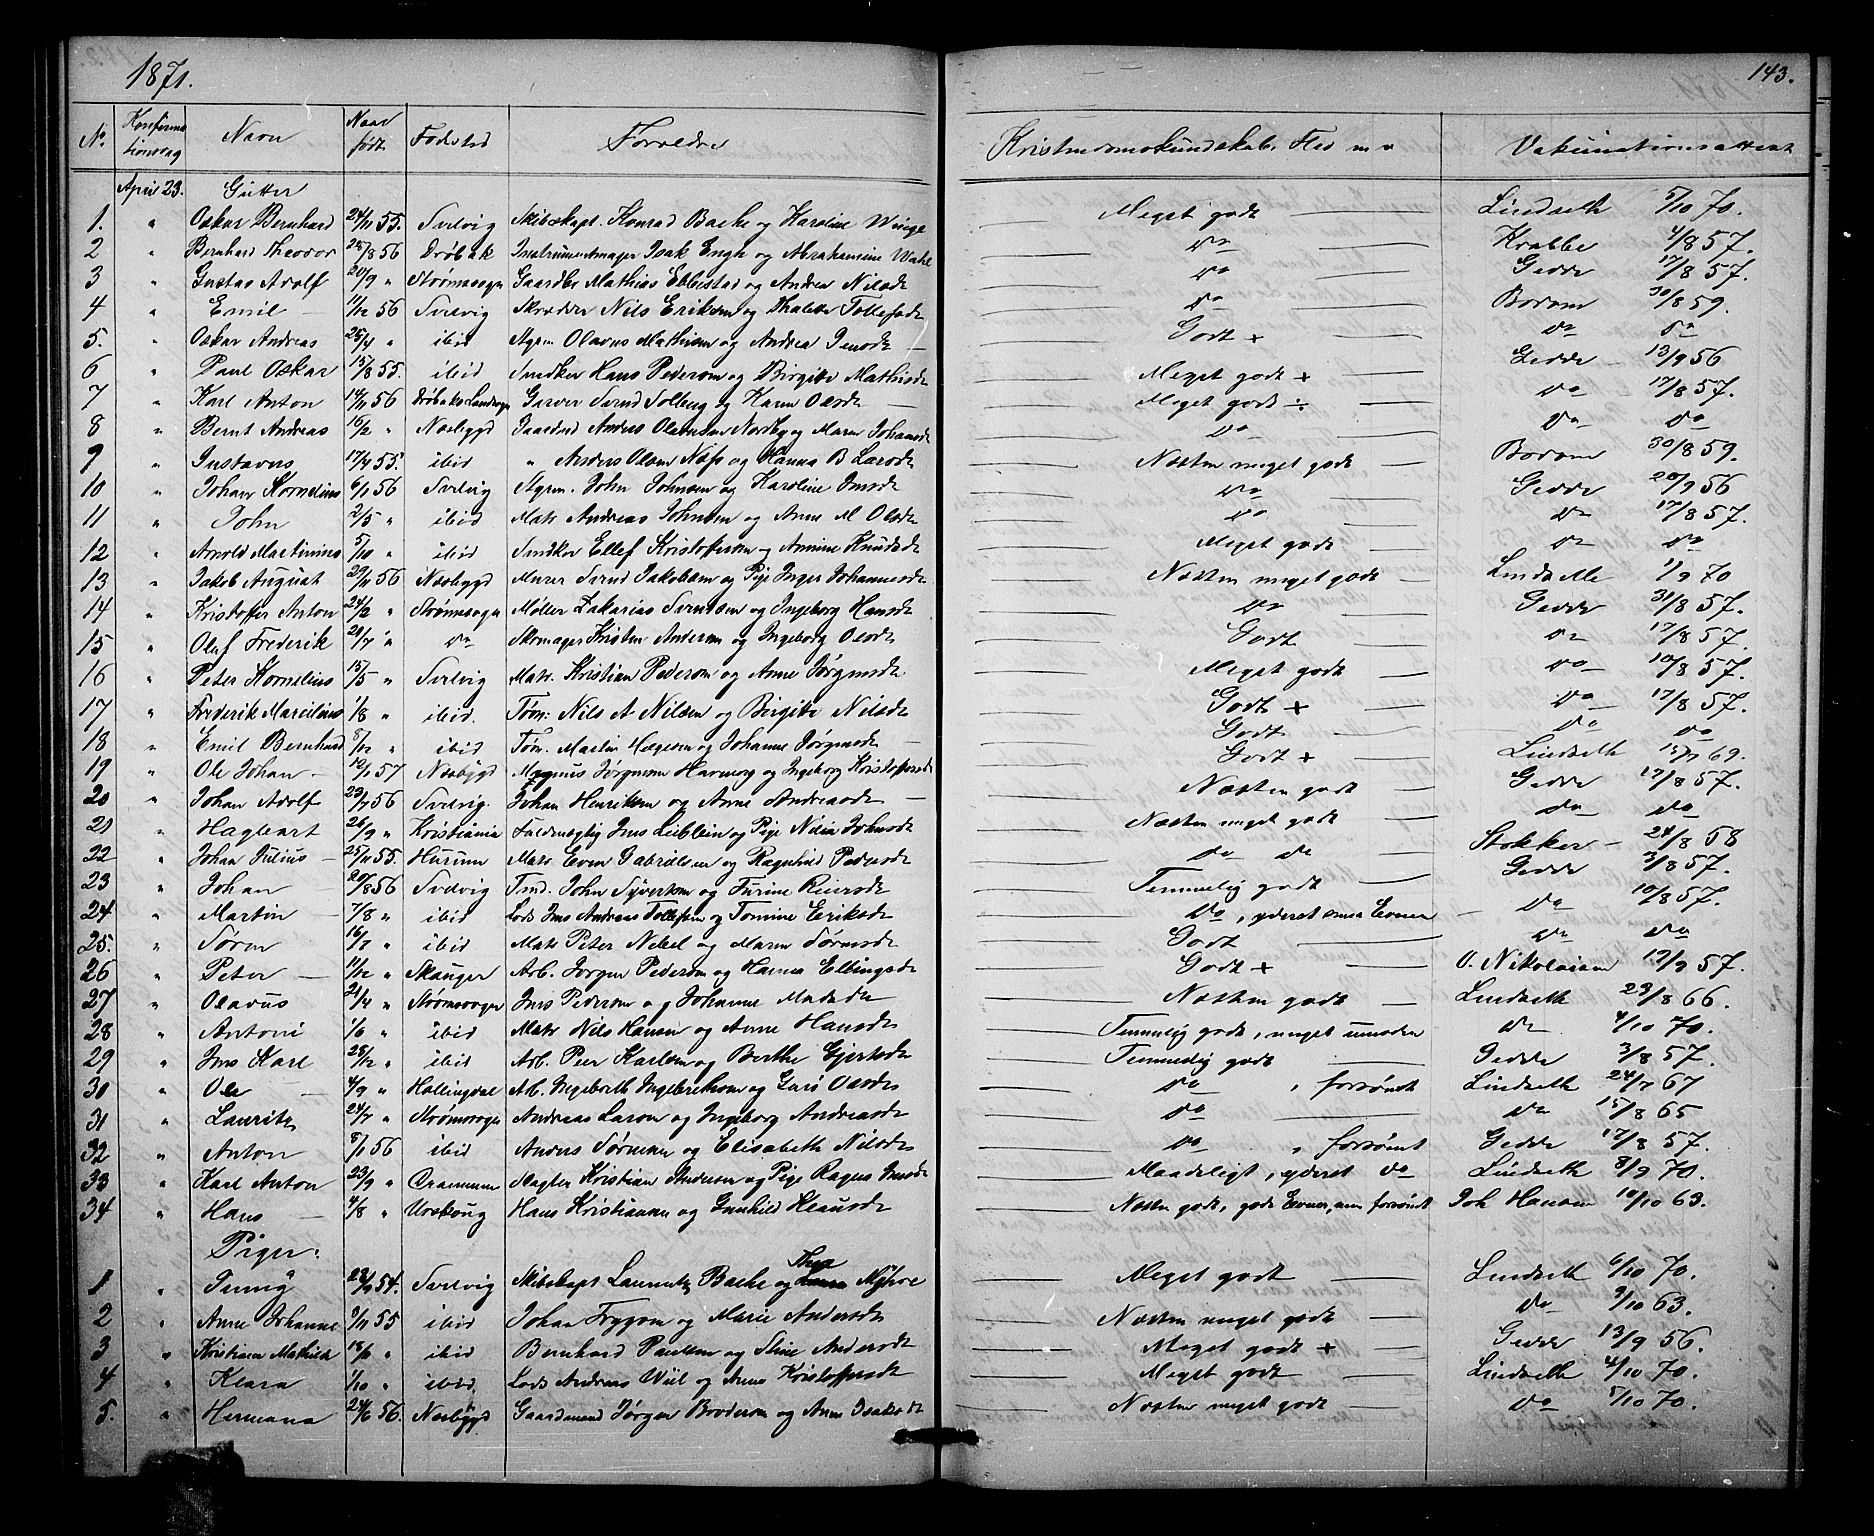 1871. 143.
No Konfirma tionsdag Navn Naar født Fødested Forældre Kristendomskundskab, Flid m v Vakcinationsattest
April 23. Gutter
1. " Oskar Bernhard 24/11 55. Svelvig Skibskapt. Konrad Bache og Karoline Winge Meget godt Lindseth 5/10 70.
2 " Bernhard Theodor 25/8 56 Drøbak Instrumentmager Isak Engh og Abrahamine Wahl do Krabbe 4/8 57.
3 " Gustav Adolf 20/9 " Strømsogn Gaardbr Mathias Ebbestad og Andrea Nilsdt do Gedde 17/8 57.
4 " Emil 11/12 56 Svelvig Skrædder Nils Eriksen og Thalette Tollefsdt do Bodom 30/8 59.
5. " Oskar Andreas 25/4 " ibid Styrm Olavus Mathisen og Andrea Jensdt Godt + do do
6 " Paul Oskar 15/8 55. ibid Snedker Hans Pedersen og Birgitte Mathisdt Meget godt + Gedde 13/9 56
7 " Karl Anton 14/11 56 Drøbaks Landsogn Garver Svend Solberg og Karen Olsdt Meget godt ÷ do 17/8 57.
8 " Bernt Andreas 16/2 " Nesbygd Gaardmd Anders Olavesen Nordby og Maren Johansdt do do do
9 " Gustavus 17/4 55. ibid " Anders Olsen Næss og Hanna B Larsdt Næsten meget godt Bodom 30/8 59.
10 " Johan Kornelius 6/1 56 Svelvig Styrm. John Johnsen og Karoline Jensdt do Gedde 20/9 56
11 " John 2/5 " ibid Matr Andreas Johnsen og Anne M Olsdt do do 17/8 57.
12 " Arnold Martinius 5/10 " ibid Snedker Ellef Kristoffersen og Annine Knudsdt Meget godt do do
13 " Jakob August 29/11 56 Nesbygd Murer Svend Jakobsen og Pige Inger Johannesdt Næsten meget godt Lindseth 1/9 70
14 " Kristoffer Anton 24/2 " Strømsogn Møller Zakarias Svendsen og Ingeborg Hansdt do Gedde 31/8 57.
15 " Oluf Frederik 20/7 " do Skomager Kristen Andersen og Ingeborg Olsdt Godt do 17/8 57.
16 " Peter Kornelius 15/5 " Svelvig Matr. Kristian Pedersen og Anne Jørgensdt Meget godt do 10/8 57.
17 " Frederik Marcelius 1/8 " ibid. Tøm: Nils A Nilsen og Birgitte Nilsdt Godt + do 17/8 57.
18 " Emil Bernhard 8/12 " ibid Tøm. Martin Hagesen og Johanne Jørgensdt Godt do do
19 " Ole Johan 12/1 57 Nesbygd Magnus Jørgensen Havnorg og Ingeborg Kristoffersdt Godt + Lindseth 15/7 69.
20 " Johan Adolf 23/7 56 Svelvig. Johan Henriksen og Anne Andreasdt Næsten godt Gedde 17/8 57.
21 " Hagbart 26/9 " Kristiania Fuldmægtig Jens Lieblein og Pige Nilia Johnsdt Næsten meget godt do do
22 " Johan Julius 25/11 55. Hurum Matr. Even Gabrielsen og Ragnhild Pedersdt do do Stokker 24/8 68
23 " Johan 20/8 56 Svelvig Tmd. John Syvertsen og Turine Reiersdt Temmelig godt Gedde 3/8 57.
24. " Martin 7/8 " ibid Lods Jens Andreas Tollefsen og Tomine Eriksdt do, yderst smaa Evner do 10/8 57.
25. " Søren 16/7 " ibid Matr Peter Nebel og Maren Sørensdt Godt do do
26 " Peter 11/12 " Skauger Arb. Jørgen Pedersen og Hanna Elbingsdt Godt + O. Nikolaisen 12/9 57.
27 " Olavus 21/4 " Strømsogn Jens Pedersen og Johanne Madsdt Næsten godt Lindseth 29/8 66.
28 " Antoni 1/6 " ibid Matr Nils Hansen og Anne Hansdt Temmelig godt, meget umoden do 4/10 70.
29 " Jens Karl 28/12 " ibid Arb. Peer Karlsen og Berthe Gjertsdt Temmelig godt Gedde 3/8 57.
30 " Ole 4/9 " Hallingdal Arb. Ingebreth Ingebrethsen og Guro Olsdt do , forsømt Lindseth 24/7 67
31 " Lauritz 24/7 " Strømsogn Andreas Larsen og Ingeborg Andreasdt do do 15/8 65
32 " Anton 8/1 56 ibid Anders Sørensen og Elisabeth Nilsdt do , forsømt Gedde 17/8 57.
33 " Karl Anton 23/9 " Drammen Magler Kristian Andersen og Pige Ragna Jensdt Maadeligt, yderst do Lindseth 8/9 70.
34 " Hans 4/8 " Urskoug Hans Kristiansen og Gunhild Klausdt Næsten godt, gode Evner, men forsømt Joh Hansen 10/10 63.
Piger:
Thea
1 " Fanny 23/10 54. Svelvig Skibskapt Laurentz Bache og Myhre Meget godt Lindseth 6/10 70.
2 " Anne Johanne 3/11 55 ibid Johan Trygsen og Marie Andersdt Næsten meget godt do 9/10 63.
3 " Kristiane Mathilde " ibid Bernhard Paulsen og Stine Andersdt Meget godt + Gedde 13/9 56.
4 " Klara 1/10 " ibid. Lods Andreas Wiil og Anne Kristoffersdt Meget godt Lindseth 4/10 70.
5. " Hermana 24/6 56. Nesbygd Gaardmand Jørgen Brodersen og Anne Isaksdt Næsten meget godt do 5/10 70.